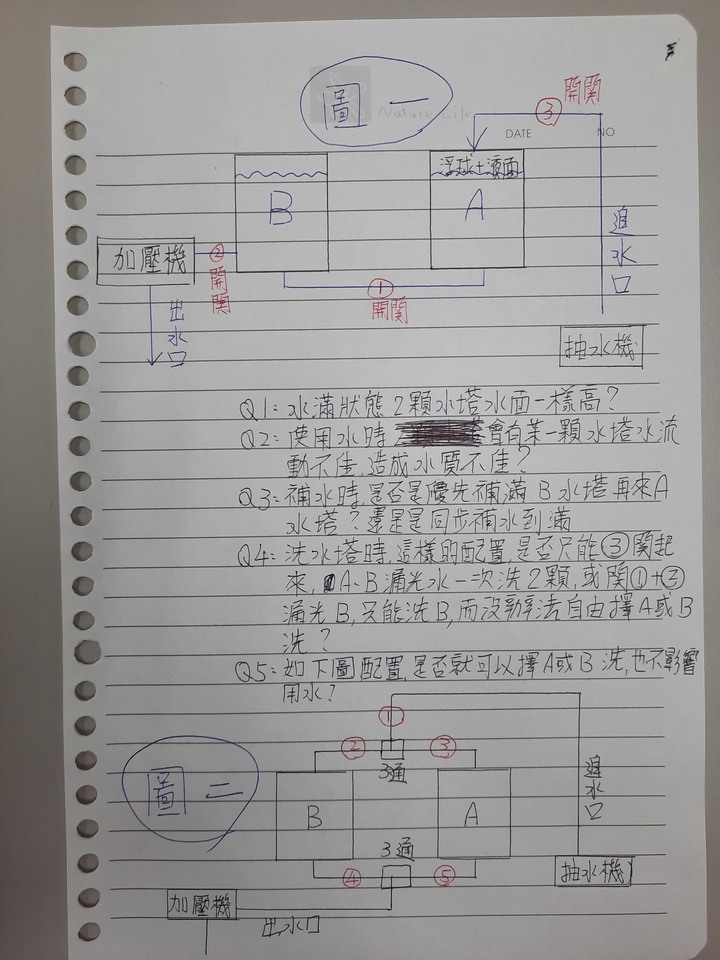 圖一
Nature Life
DATE
NO
③ 開關
浮球+液面
B
A
進水口
加壓機
② 開關
① 開關
出水口
抽水機
Q1:水滿狀態2顆水塔水面一樣高?
Q2:使用水時 會有某一顆水塔水流
動不佳,造成水質不佳?
Q3:補水時,是否是優先補滿B水塔再來A
水塔?還是是同步補水到滿
Q4:洗水塔時,這樣的配置,是否只能③關起
來,A、B漏光水一次洗2顆,或關①+③
漏光B,只能洗B,而沒辦法自由擇A或B
洗?
Q5:如下圖配置,是否就可以擇A或B洗,也不影響
用水?
①
② ③
3通
圖二
B
A
進水口
3通
④ ⑤
抽水機
加壓機
出水口